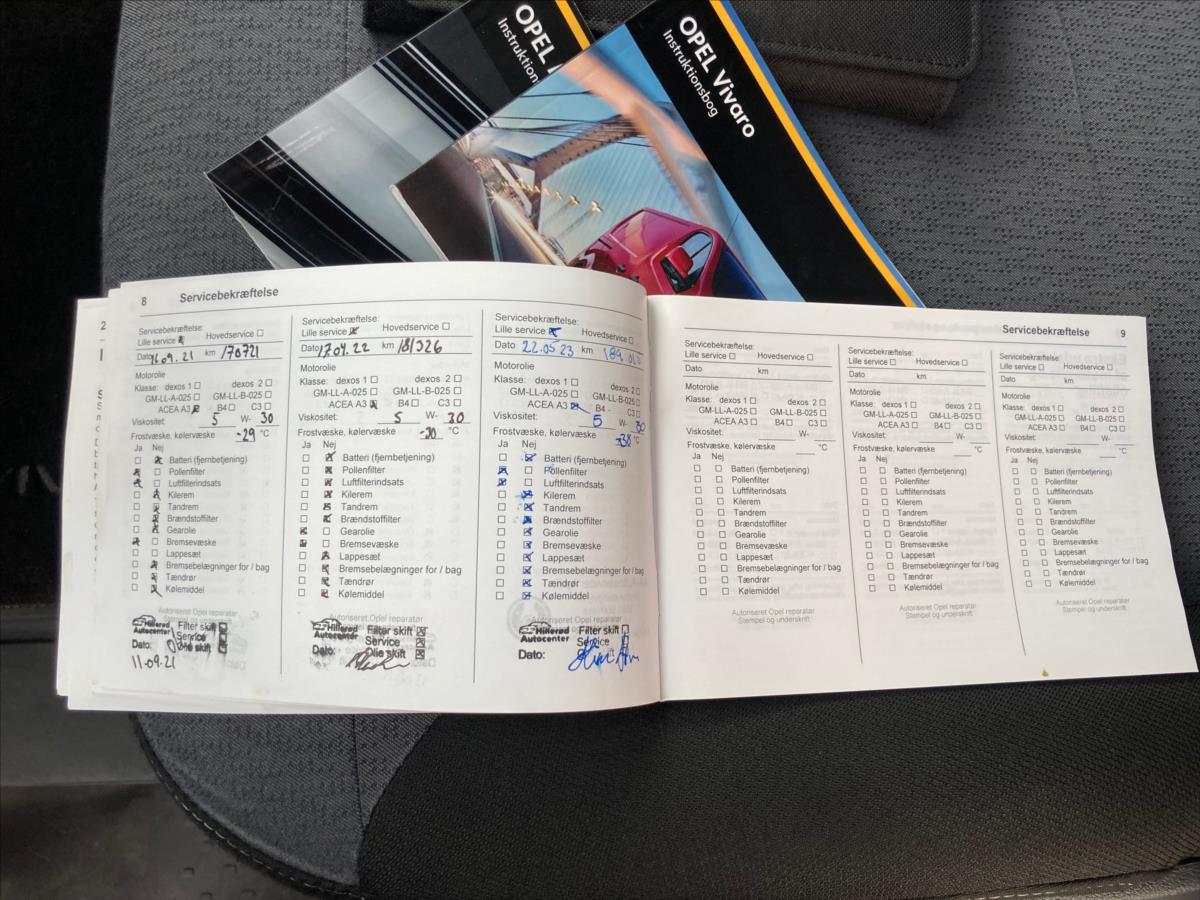 OPEL
Instruktion
OPEL Vivaro
Instruktionsbog
2
8 Servicebekræftelse
Servicebekræftelse:
Lille service Hovedservice
Dato km 170721
Motorolie
Klasse: dexos 1 dexos 2
GM-LL-A-025 GM-LL-B-025
ACEA A3 B4 C3
Viskositet: 5 W- 30
Frostvæske, kølervæske -29 °C
Ja Nej
Batteri (fjernbetjening)
Pollenfilter
Luftfilterindsats
Kilerem
Tandrem
Brændstoffilter
Gearolie
Bremsevæske
Lappesæt
Bremsebelægninger for / bag
Tændrør
Kølemiddel
Hillerød
Autocenter
Filter skift
Service
Olie skift
Dato:
11.09.21
Servicebekræftelse:
Lille service Hovedservice
Dato 17.04.22 km 181326
Motorolie
Klasse: dexos 1 dexos 2
GM-LL-A-025 GM-LL-B-025
ACEA A3 B4 C3
Viskositet: 5 W- 30
Frostvæske, kølervæske -30 °C
Ja Nej
Batteri (fjernbetjening)
Pollenfilter
Luftfilterindsats
Kilerem
Tandrem
Brændstoffilter
Gearolie
Bremsevæske
Lappesæt
Bremsebelægninger for / bag
Tændrør
Kølemiddel
Autoriseret Opel reparatør
Hillerød
Autocenter
Filter skift
Service
Olie skift
Dato:
Servicebekræftelse:
Lille service Hovedservice
Dato 22.05 23 km
Motorolie
Klasse: dexos 1 dexos 2
GM-LL-A-025 GM-LL-B-025
ACEA A3 B4 C3
Viskositet: 5 W- 30
Frostvæske, kølervæske -38 °C
Ja Nej
Batteri (fjernbetjening)
Pollenfilter
Luftfilterindsats
Kilerem
Tandrem
Brændstoffilter
Gearolie
Bremsevæske
Lappesæt
Bremsebelægninger for / bag
Tændrør
Kølemiddel
Autoriseret Opel reparatør
Hillerød
Autocenter
Filter skift
Service
Dato:
Servicebekræftelse 9
Servicebekræftelse:
Lille service Hovedservice
Dato km
Motorolie
Klasse: dexos 1 dexos 2
GM-LL-A-025 GM-LL-B-025
ACEA A3 B4 C3
Viskositet: W-
Frostvæske, kølervæske °C
Ja Nej
Batteri (fjernbetjening)
Pollenfilter
Luftfilterindsats
Kilerem
Tandrem
Brændstoffilter
Gearolie
Bremsevæske
Lappesæt
Bremsebelægninger for / bag
Tændrør
Kølemiddel
Autoriseret Opel reparatør
Stempel og underskrift
Servicebekræftelse:
Lille service Hovedservice
Dato km
Motorolie
Klasse: dexos 1 dexos 2
GM-LL-A-025 GM-LL-B-025
ACEA A3 B4 C3
Viskositet: W-
Frostvæske, kølervæske °C
Ja Nej
Batteri (fjernbetjening)
Pollenfilter
Luftfilterindsats
Kilerem
Tandrem
Brændstoffilter
Gearolie
Bremsevæske
Lappesæt
Bremsebelægninger for / bag
Tændrør
Kølemiddel
Autoriseret Opel reparatør
Stempel og underskrift
Servicebekræftelse:
Lille service Hovedservice
Dato km
Motorolie
Klasse: dexos 1 dexos 2
GM-LL-A-025 GM-LL-B-025
ACEA A3 B4 C3
Viskositet: W-
Frostvæske, kølervæske °C
Ja Nej
Batteri (fjernbetjening)
Pollenfilter
Luftfilterindsats
Kilerem
Tandrem
Brændstoffilter
Gearolie
Bremsevæske
Lappesæt
Bremsebelægninger for / bag
Tændrør
Kølemiddel
Autoriseret Opel reparatør
Stempel og underskrift